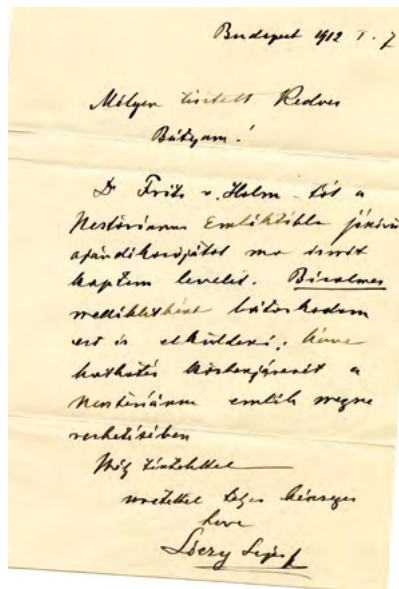 Budapest 1912 I. 7
Mélyen tisztelt Kedves
Bátyám!
Dr Frits v. Holm-tól a
Nestoriánus Emléktábla
ajándékozójától ma ismét
kaptam levelet. Bizalmas
mellékletként bátorkodom
ezt is elküldeni; kérve
hathatós közbenjárását a
Nestoriánus emlék megsze
rezhetésében
Mély tisztelettel
szeretettel teljes
híve
Lóczy Lajos